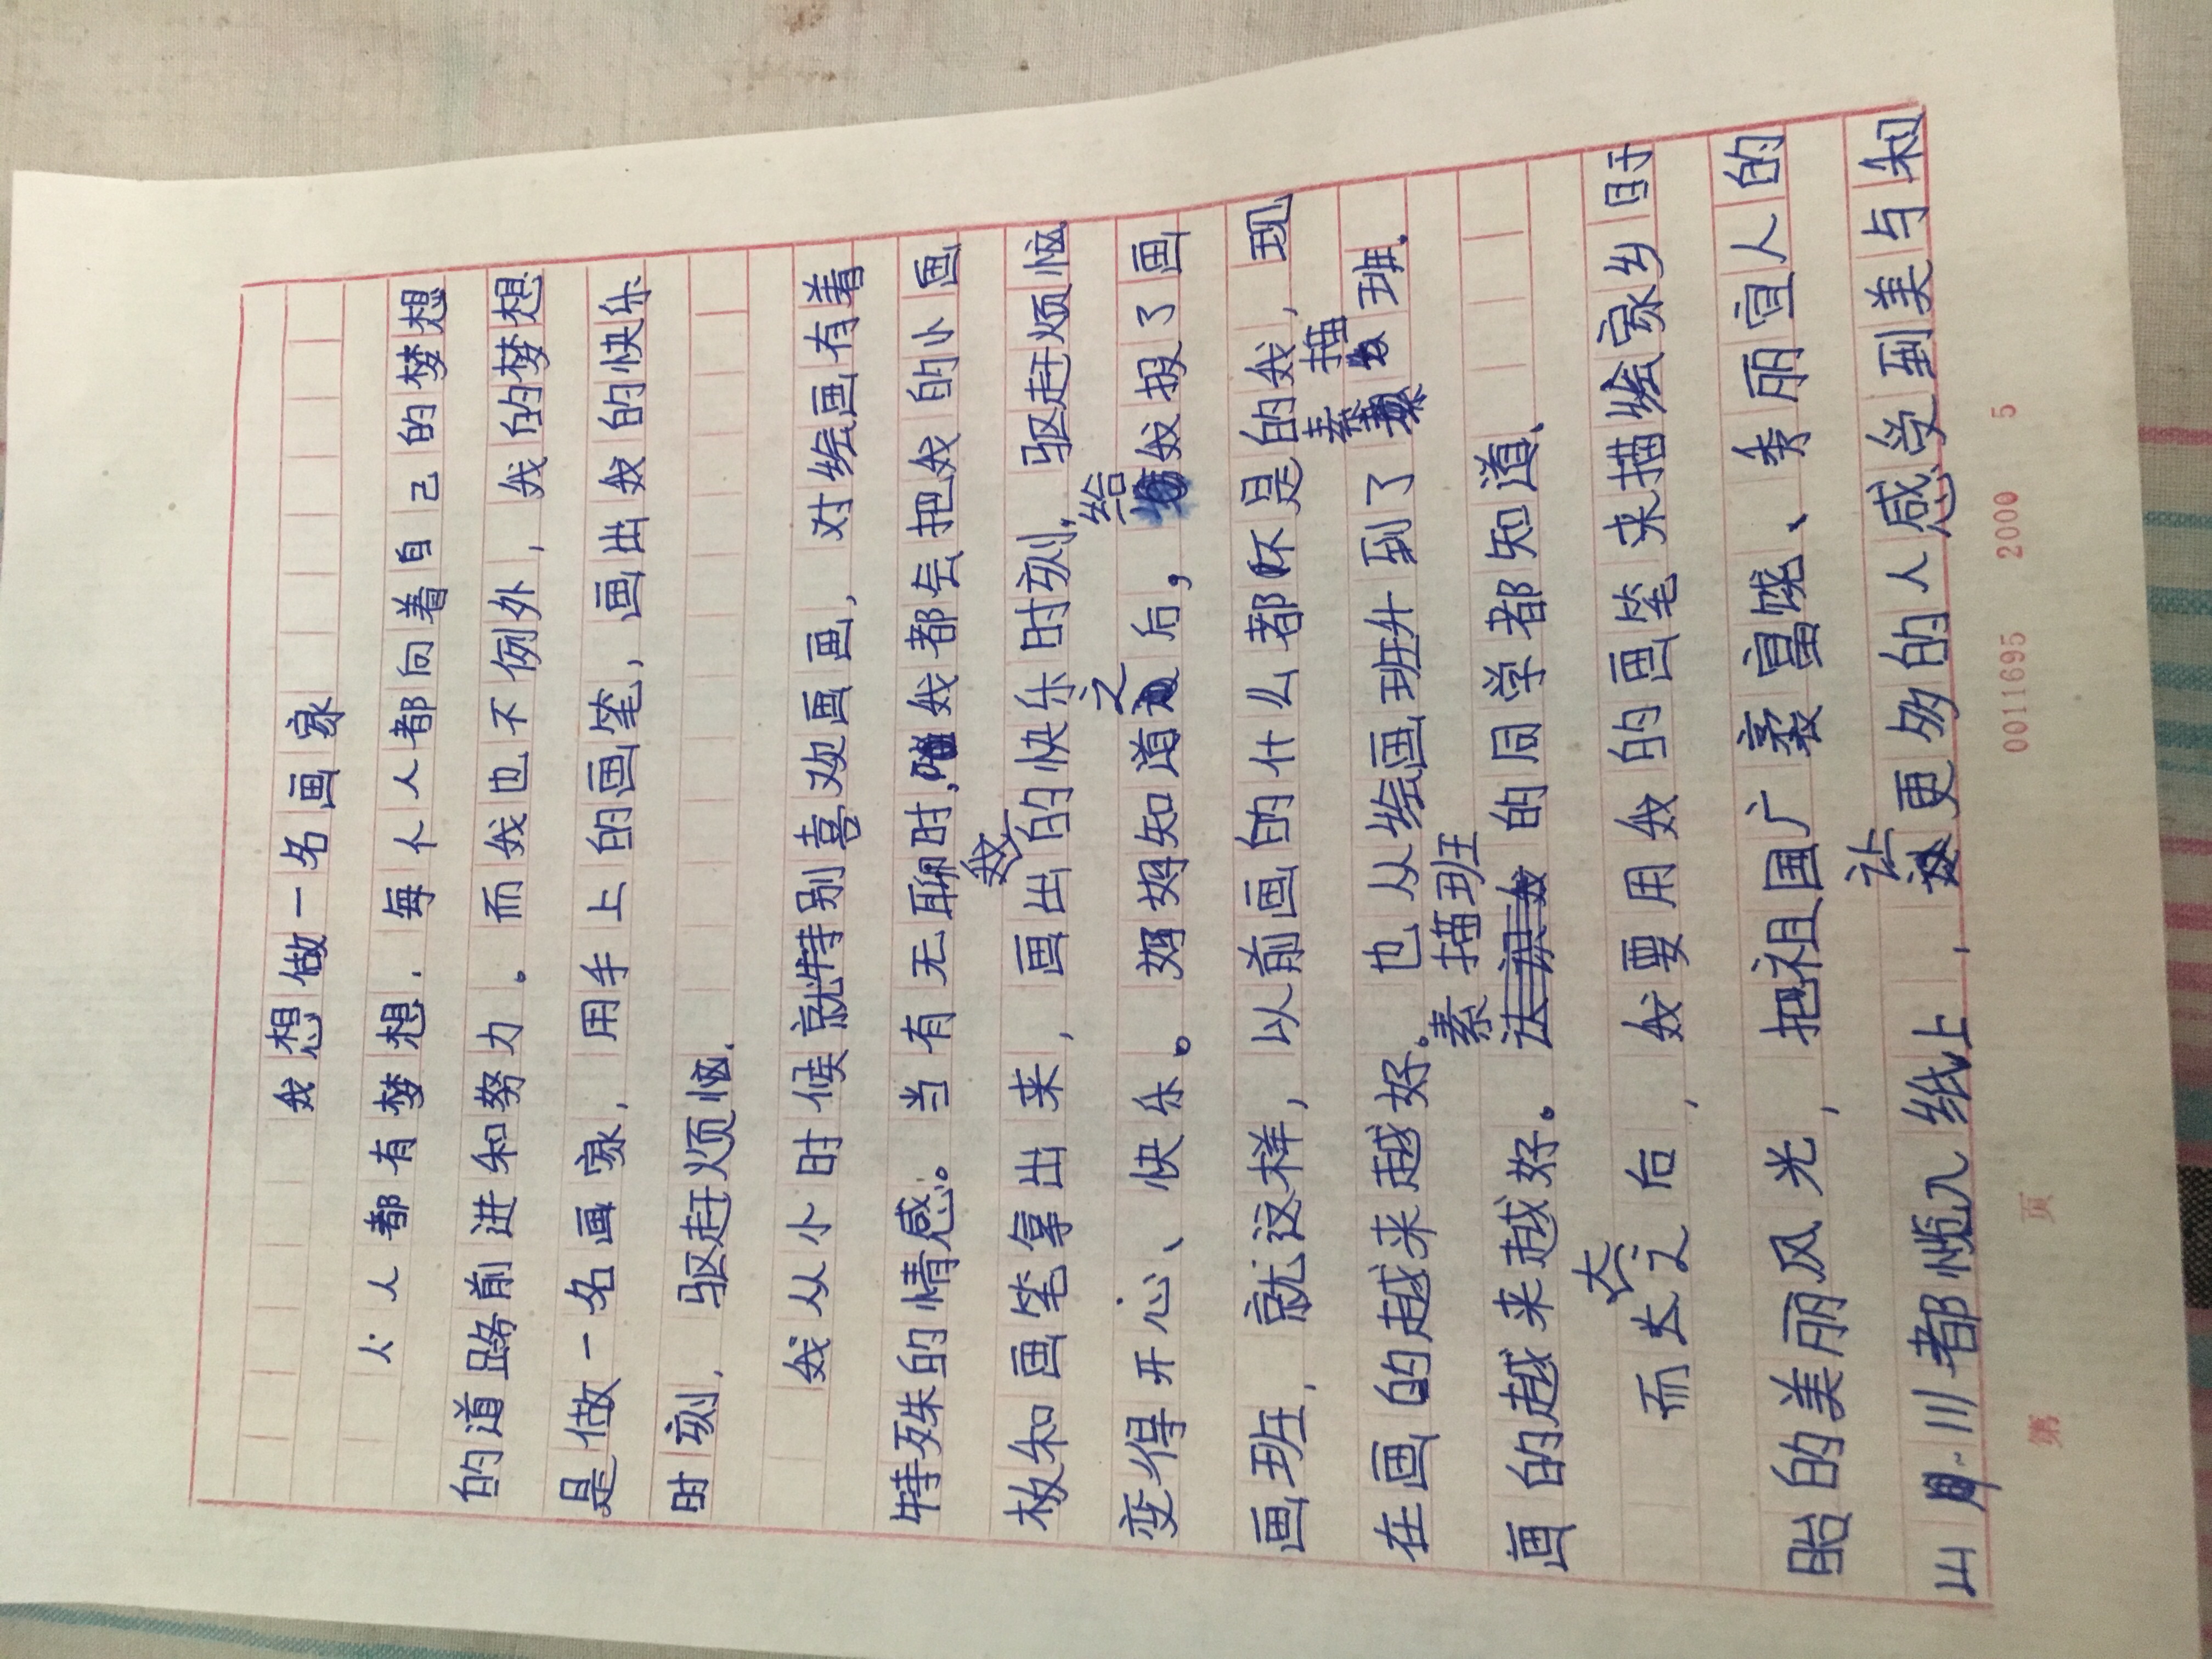 我想做一名画家
人人都有梦想，每个人都向着自己的梦想
的道路前进和努力。而我也不例外，我的梦想
是做一名画家，用手上的画笔，画出我的快乐
时刻，驱赶烦恼。
我从小时候就特别喜欢画画，对绘画有着
特殊的情感。当有无聊时，我都会把我的小画
板和画笔拿出来，画出我的快乐时刻，驱赶烦恼
变得开心、快乐。妈妈知道之后，给我报了画
画班，就这样，以前画的什么都不是的我，现
在画的越来越好。也从绘画班升到了素描班。
画的越来越好。素描班的同学都知道。
而长大之后，我要用我的画笔来描绘家乡盱
眙的美丽风光，把祖国广袤富饶、秀丽宜人的
山川都惋入纸上，让更多的人感受到美与和
第 页 0011695 2000 5